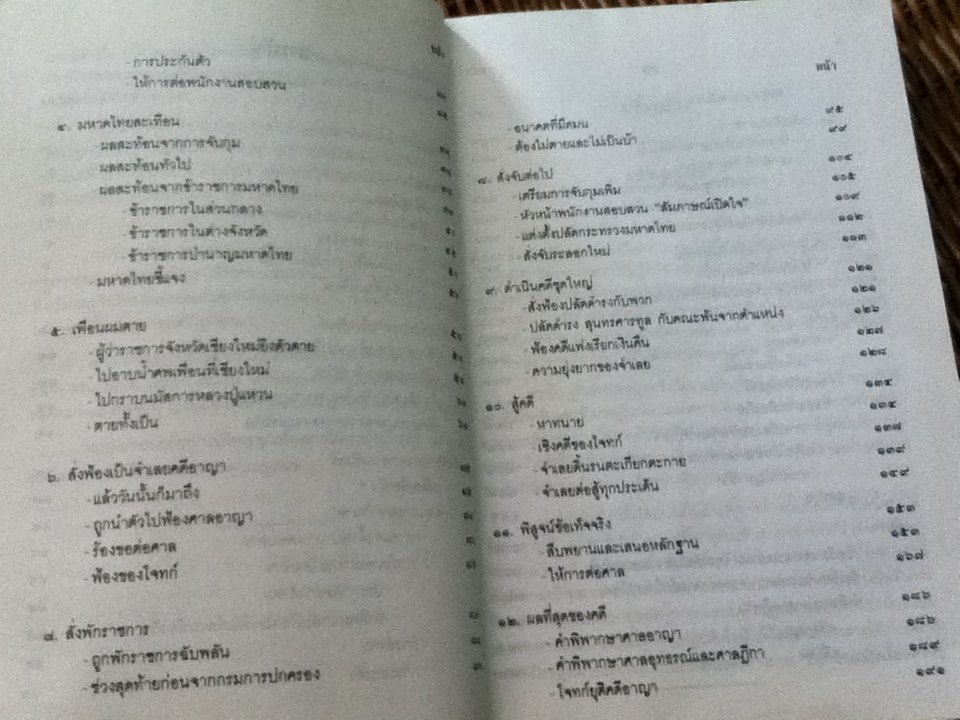 หน้า
- การประกันตัว
- ให้การต่อพนักงานสอบสวน
๔. มหาดไทยสะเทือน
- ผลสะท้อนจากการจับกุม
- ผลสะท้อนทั่วไป
- ผลสะท้อนจากข้าราชการมหาดไทย
- ข้าราชการในส่วนกลาง
- ข้าราชการในต่างจังหวัด
- ข้าราชการบำนาญมหาดไทย
- มหาดไทยชี้แจง
๕. เพื่อนผมตาย
- ผู้ว่าราชการจังหวัดเชียงใหม่ยิงตัวตาย
- ไปอาบน้ำศพเพื่อนที่เชียงใหม่
- ไปกราบนมัสการหลวงปู่แหวน
- ตายทั้งเป็น
๖. สั่งฟ้องเป็นจำเลยคดีอาญา
- แล้ววันนั้นก็มาถึง
- ถูกนำตัวไปฟ้องศาลอาญา
- ร้องขอต่อศาล
- ฟ้องของโจทก์
๗. สั่งพักราชการ
- ถูกพักราชการฉับพลัน
- ช่วงสุดท้ายก่อนจากกรมการปกครอง
หน้า
- อนาคตที่มืดมน ๙๕
- ต้องไม่ตายและไม่เป็นบ้า ๙๙
๘. สั่งจับต่อไป ๑๐๔
- เตรียมการจับกุมเพิ่ม ๑๐๕
- หัวหน้าพนักงานสอบสวน "สัมภาษณ์เปิดใจ" ๑๐๙
- แต่งตั้งปลัดกระทรวงมหาดไทย ๑๑๒
- สั่งจับระลอกใหม่ ๑๑๓
๙. ดำเนินคดีชุดใหญ่ ๑๒๑
- สั่งฟ้องปลัดดำรงกับพวก ๑๒๑
- ปลัดดำรง สุนทรศารทูล กับคณะพ้นจากตำแหน่ง ๑๒๖
- ฟ้องคดีแพ่งเรียกเงินคืน ๑๒๗
- ความยุ่งยากของจำเลย ๑๒๘
๑๐. สู้คดี ๑๓๔
- หาทนาย ๑๓๔
- เชิงคดีของโจทก์ ๑๓๗
- จำเลยดิ้นรนตะเกียกตะกาย ๑๓๙
- จำเลยต่อสู้ทุกประเด็น ๑๔๙
๑๑. พิสูจน์ข้อเท็จจริง ๑๕๓
- สืบพยานและเสนอหลักฐาน ๑๕๓
- ให้การต่อศาล ๑๖๗
๑๒. ผลที่สุดของคดี ๑๘๖
- คำพิพากษาศาลอาญา ๑๘๖
- คำพิพากษาศาลอุทธรณ์และศาลฎีกา ๑๘๙
- โจทก์ยุติคดีอาญา ๑๙๑